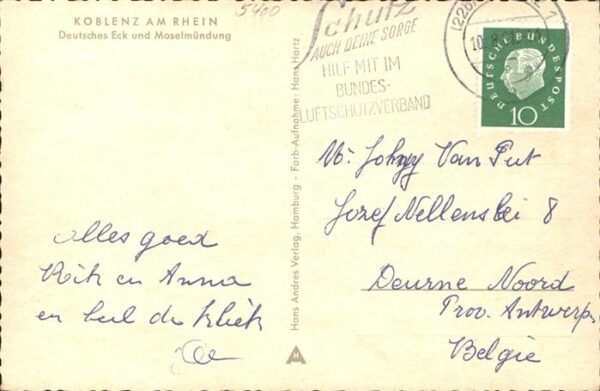 KOBLENZ AM RHEIN
Deutsches Eck und Moselmündung
5400
Schutz
AUCH DEINE SORGE
HILF MIT IM
BUNDES-
LUFTSCHUTZVERBAND
DEUTSCHE BUNDESPOST
10
Hans Andres Verlag, Hamburg - Farb-Aufnahme: Hans Hartz
H
alles goed
en Anna
en heel de kliek
Mr. Johny Van Put
Jozef Nellenslei 8
Deurne Noord
Prov. Antwerp.
Belgie